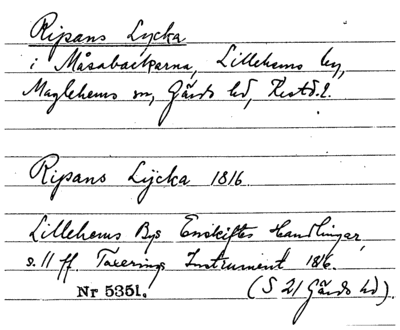 Ripans Lycka
i Måsabackarna, Lillehems by,
Maglehems sn, Gärds hd, Kristd. l.
Ripans Lÿcka 1816
Lillehems Bys Enskiftes Handlingar,
s. 11 ff. Taxerings Instrument 1816.
Nr 5351. (S 21 Gärds hd).